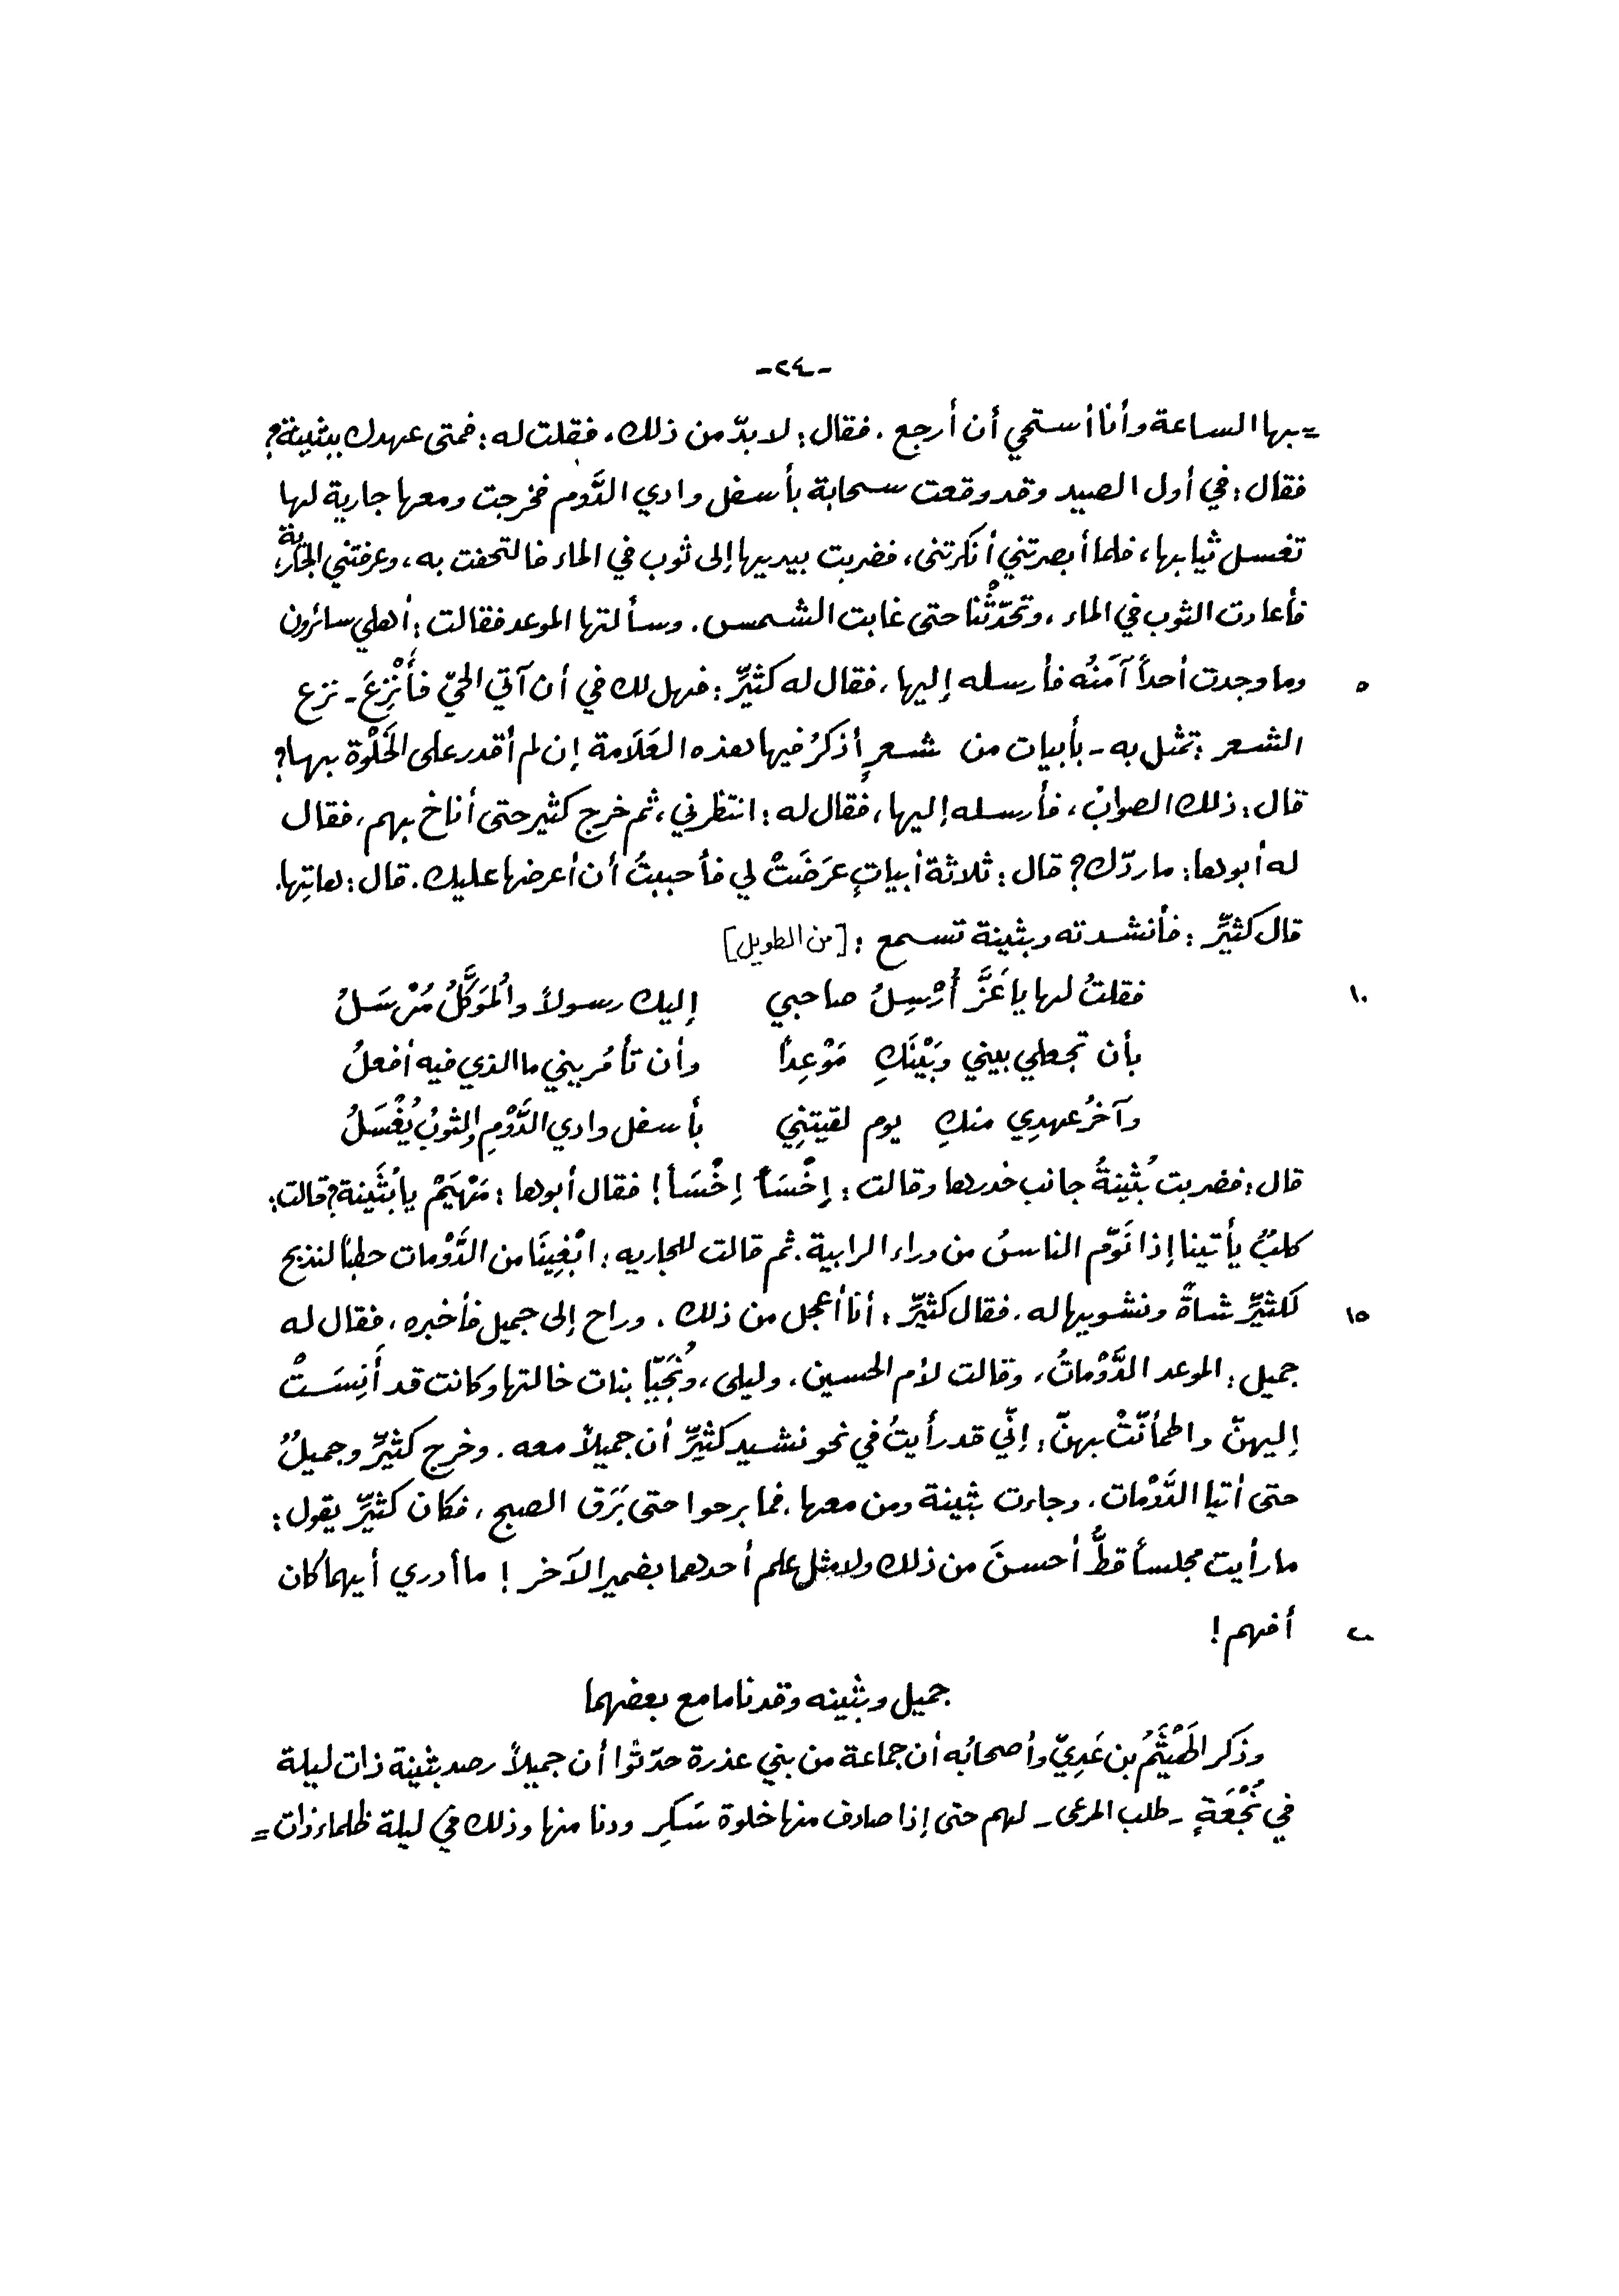 -٢٤-
= بها الساعة وأنا أستحي أن أرجع. فقال: لا بدّ من ذلك، فقلت له: فمتى عهدك ببثينة؟
فقال: في أول الصيد وقد وقعت سحابة بأسفل وادي الدَّوم فخرجت ومعها جارية لها
تغسل ثيابها، فلما أبصرتني أنكرتني، فضربت بيديها إلى ثوب في الماء فالتحفت به، وعرفتني الجارية
فأعادت الثوب في الماء، وتحدّثْنا حتى غابت الشمس. وسألتها الموعد فقالت: أهلي سائرون
٥ وما وجدت أحداً آمَنُه فأرسله إليها، فقال له كثيِّر: فهل لك في أن آتي الحيّ فأَنْزِعَ - نزع
الشعر: تمثل به - بأبيات من شعرٍ أذكرُ فيها هذه العَلَامة إن لم أقدر على الخَلْوة بها؟
قال: ذلك الصوابُ، فأرسله إليها، فقال له: انتظرني، ثم خرج كثير حتى أناخ بهم، فقال
له أبوها: ما ردّك؟ قال: ثلاثة أبياتٍ عرَضَتْ لي فأحببتُ أن أعرضها عليك. قال: هاتِها.
قال كثيِّر: فأنشدته وبثينة تسمع: [من الطويل]
١٠ فقلتُ لها يا عَزَّ أُرْسِلُ صاحبي إليك رسولاً والمُوَكَّلُ مُرْسَلُ
بأن تجعلي بيني وبَيْنَكِ مَوْعِداً وأن تأمُريني ما الذي فيه أفعلُ
وآخرُ عهدِي منكِ يوم لقيتنِي بأسفل وادي الدَّوْمِ والثوبُ يُغْسَلُ
قال: فضربت بُثْينةُ جانب خدرها وقالت: إخْسَأ إخْسَأ! فقال أبوها: مَهْيَمْ يا بُثَينة؟ قالت:
كلبٌ يأتينا إذا نَوّم الناسُ من وراء الرابية. ثم قالت للجاريه: ابْغِينَا من الدَّوْمات حطباً لنذبح
١٥ لكثيِّر شاةً ونشويها له. فقال كثيِّر: أنا أعجل من ذلك. وراح إلى جميل فأخبره، فقال له
جميل: الموعد الدَّوْماتُ، وقالت لأم الحسين، وليلى، ونُجَيّا بنات خالتها وكانت قد أَنِسَتْ
إليهنّ واطمأنّتْ بهنّ: إنّي قد رأيتُ في نحو نشيد كثيِّر أن جميلاً معه. وخرج كثيِّر وجميلٌ
حتى أتيا الدَّوْمات، وجاءت بثينة ومن معها، فما برحوا حتى بَرَق الصبح، فكان كثيِّر يقول:
ما رأيت مجلساً قطُّ أحسنَ من ذلك ولا مثل علم أحدهما بضمير الآخر! ما أدري أيهما كان
٢٠ أفهم!
جميل وبثينه وقد ناما مع بعضهما
وذكر الهَيْثَمُ بن عَدِيّ وأصحابُه أن جماعة من بني عذرة حدّثوا أن جميلاً رصد بثينة ذات ليلة
في نُجْعَةٍ - طلب المرعى - لهم حتى إذا صادف منها خلوة سَكِر ودنا منها وذلك في ليلة ظلماء ذات =